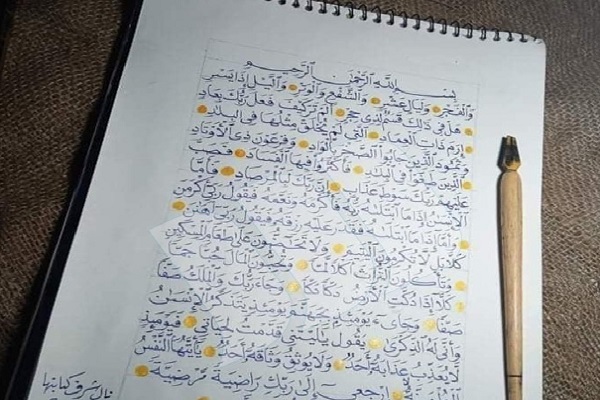 بِسْمِ اللَّهِ الرَّحْمَٰنِ الرَّحِيمِ
وَالْفَجْرِ وَلَيَالٍ عَشْرٍ وَالشَّفْعِ وَالْوَتْرِ وَاللَّيْلِ إِذَا يَسْرِ
هَلْ فِي ذَٰلِكَ قَسَمٌ لِذِي حِجْرٍ أَلَمْ تَرَ كَيْفَ فَعَلَ رَبُّكَ بِعَادٍ
إِرَمَ ذَاتِ الْعِمَادِ الَّتِي لَمْ يُخْلَقْ مِثْلُهَا فِي الْبِلَادِ
وَثَمُودَ الَّذِينَ جَابُوا الصَّخْرَ بِالْوَادِ وَفِرْعَوْنَ ذِي الْأَوْتَادِ
الَّذِينَ طَغَوْا فِي الْبِلَادِ فَأَكْثَرُوا فِيهَا الْفَسَادَ فَصَبَّ
عَلَيْهِمْ رَبُّكَ سَوْطَ عَذَابٍ إِنَّ رَبَّكَ لَبِالْمِرْصَادِ فَأَمَّا
الْإِنْسَٰنُ إِذَا مَا ابْتَلَىٰهُ رَبُّهُ فَأَكْرَمَهُ وَنَعَّمَهُ فَيَقُولُ رَبِّي أَكْرَمَنِ
وَأَمَّا إِذَا مَا ابْتَلَىٰهُ فَقَدَرَ عَلَيْهِ رِزْقَهُ فَيَقُولُ رَبِّي أَهَٰنَنِ
كَلَّا بَلْ لَا تُكْرِمُونَ الْيَتِيمَ وَلَا تَحَٰضُّونَ عَلَىٰ طَعَامِ الْمِسْكِينِ
وَتَأْكُلُونَ التُّرَاثَ أَكْلًا لَمًّا وَتُحِبُّونَ الْمَالَ حُبًّا جَمًّا
كَلَّا إِذَا دُكَّتِ الْأَرْضُ دَكًّا دَكًّا وَجَاءَ رَبُّكَ وَالْمَلَكُ صَفًّا
صَفًّا وَجِاىءَ يَوْمَئِذٍ بِجَهَنَّمَ يَوْمَئِذٍ يَتَذَكَّرُ الْإِنْسَٰنُ
وَأَنَّىٰ لَهُ الذِّكْرَىٰ يَقُولُ يَٰلَيْتَنِي قَدَّمْتُ لِحَيَاتِي فَيَوْمَئِذٍ
لَا يُعَذِّبُ عَذَابَهُ أَحَدٌ وَلَا يُوثِقُ وَثَاقَهُ أَحَدٌ يَٰأَيَّتُهَا النَّفْسُ
الْمُطْمَئِنَّةُ ارْجِعِي إِلَىٰ رَبِّكِ رَاضِيَةً مَرْضِيَّةً
نال شرف كتابتها